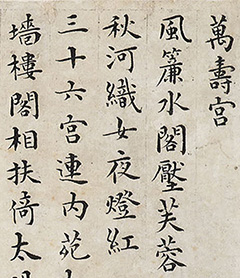 萬壽宮
風簾水閣壓芙蓉
秋河織女夜燈紅
三十六宮連内苑
墻樓閣相扶倚太